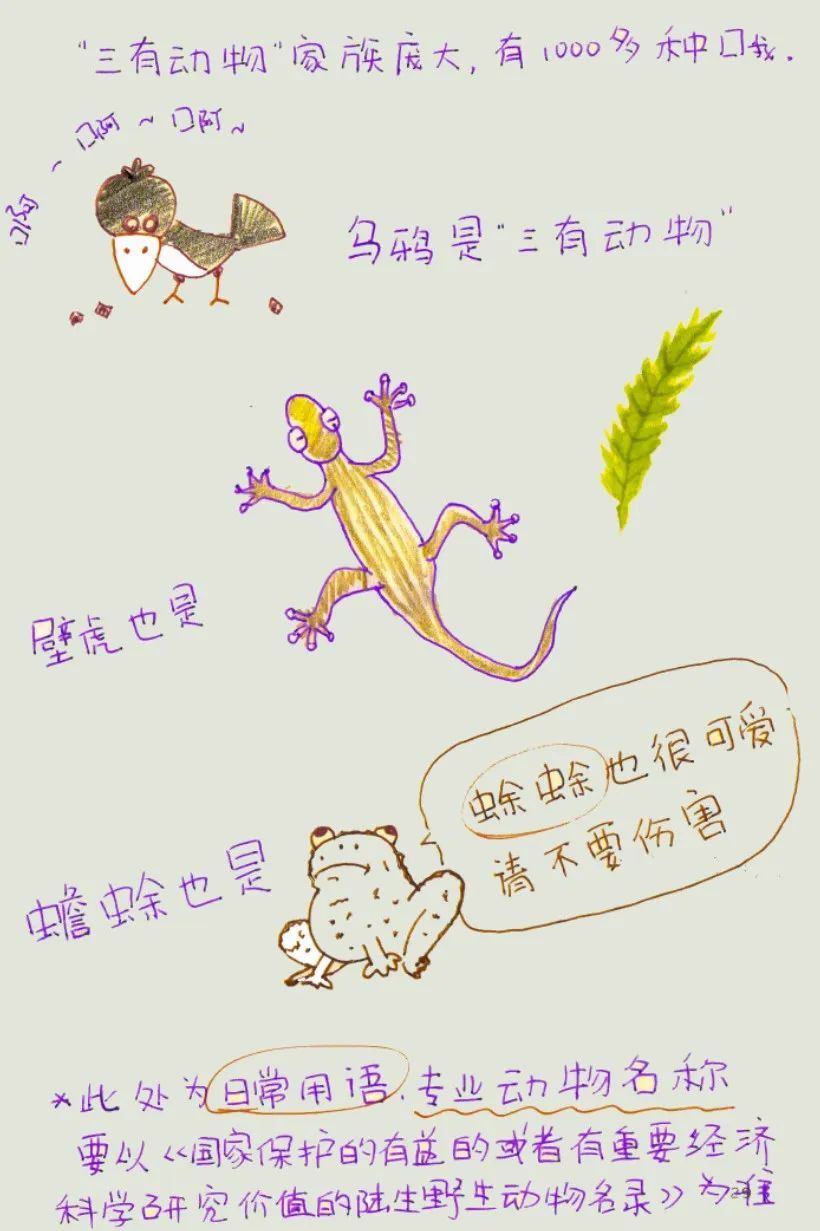 "三有动物"家族庞大，有1000多种口我．
口阿~口阿~口阿~
乌鸦是"三有动物"
壁虎也是
蜍蜍也很可爱
请不要伤害
蟾蜍也是
*此处为日常用语．专业动物名称
要以《国家保护的有益的或者有重要经济
科学研究价值的陆生野生动物名录》为准
29